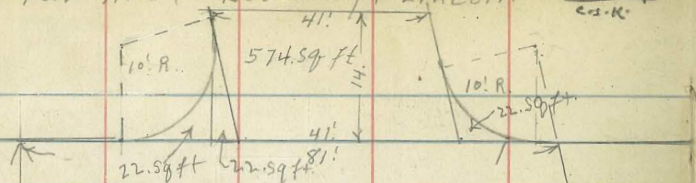 Cos.R.
41'
574.sq ft.
14.
10! R.
10! R.
22.sq ft.
41!
22.sq ft
22.sq ft.
81!